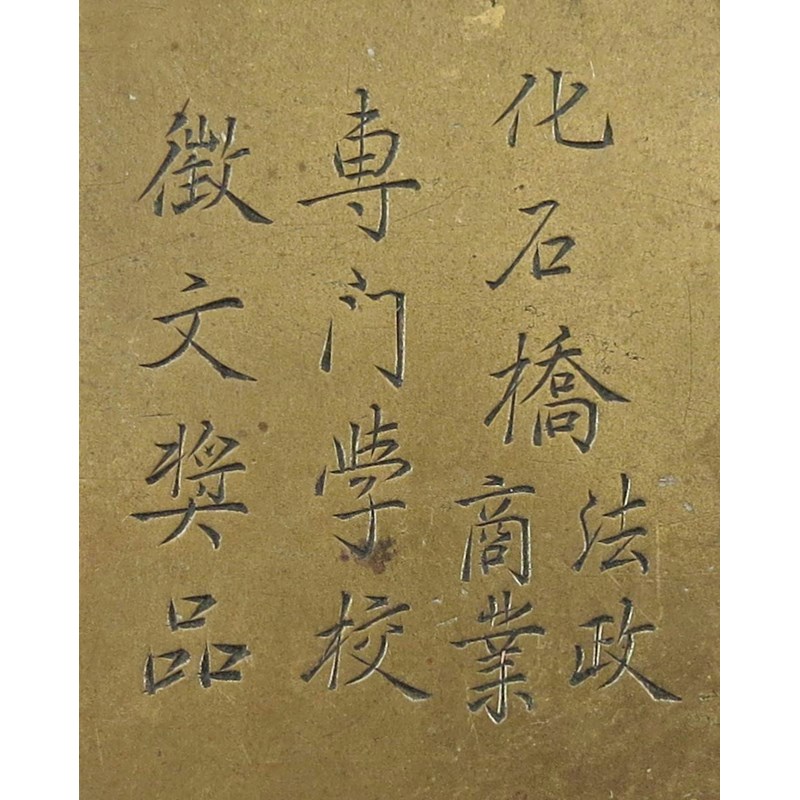 化石橋法政商業
專门學校
徵文奨品